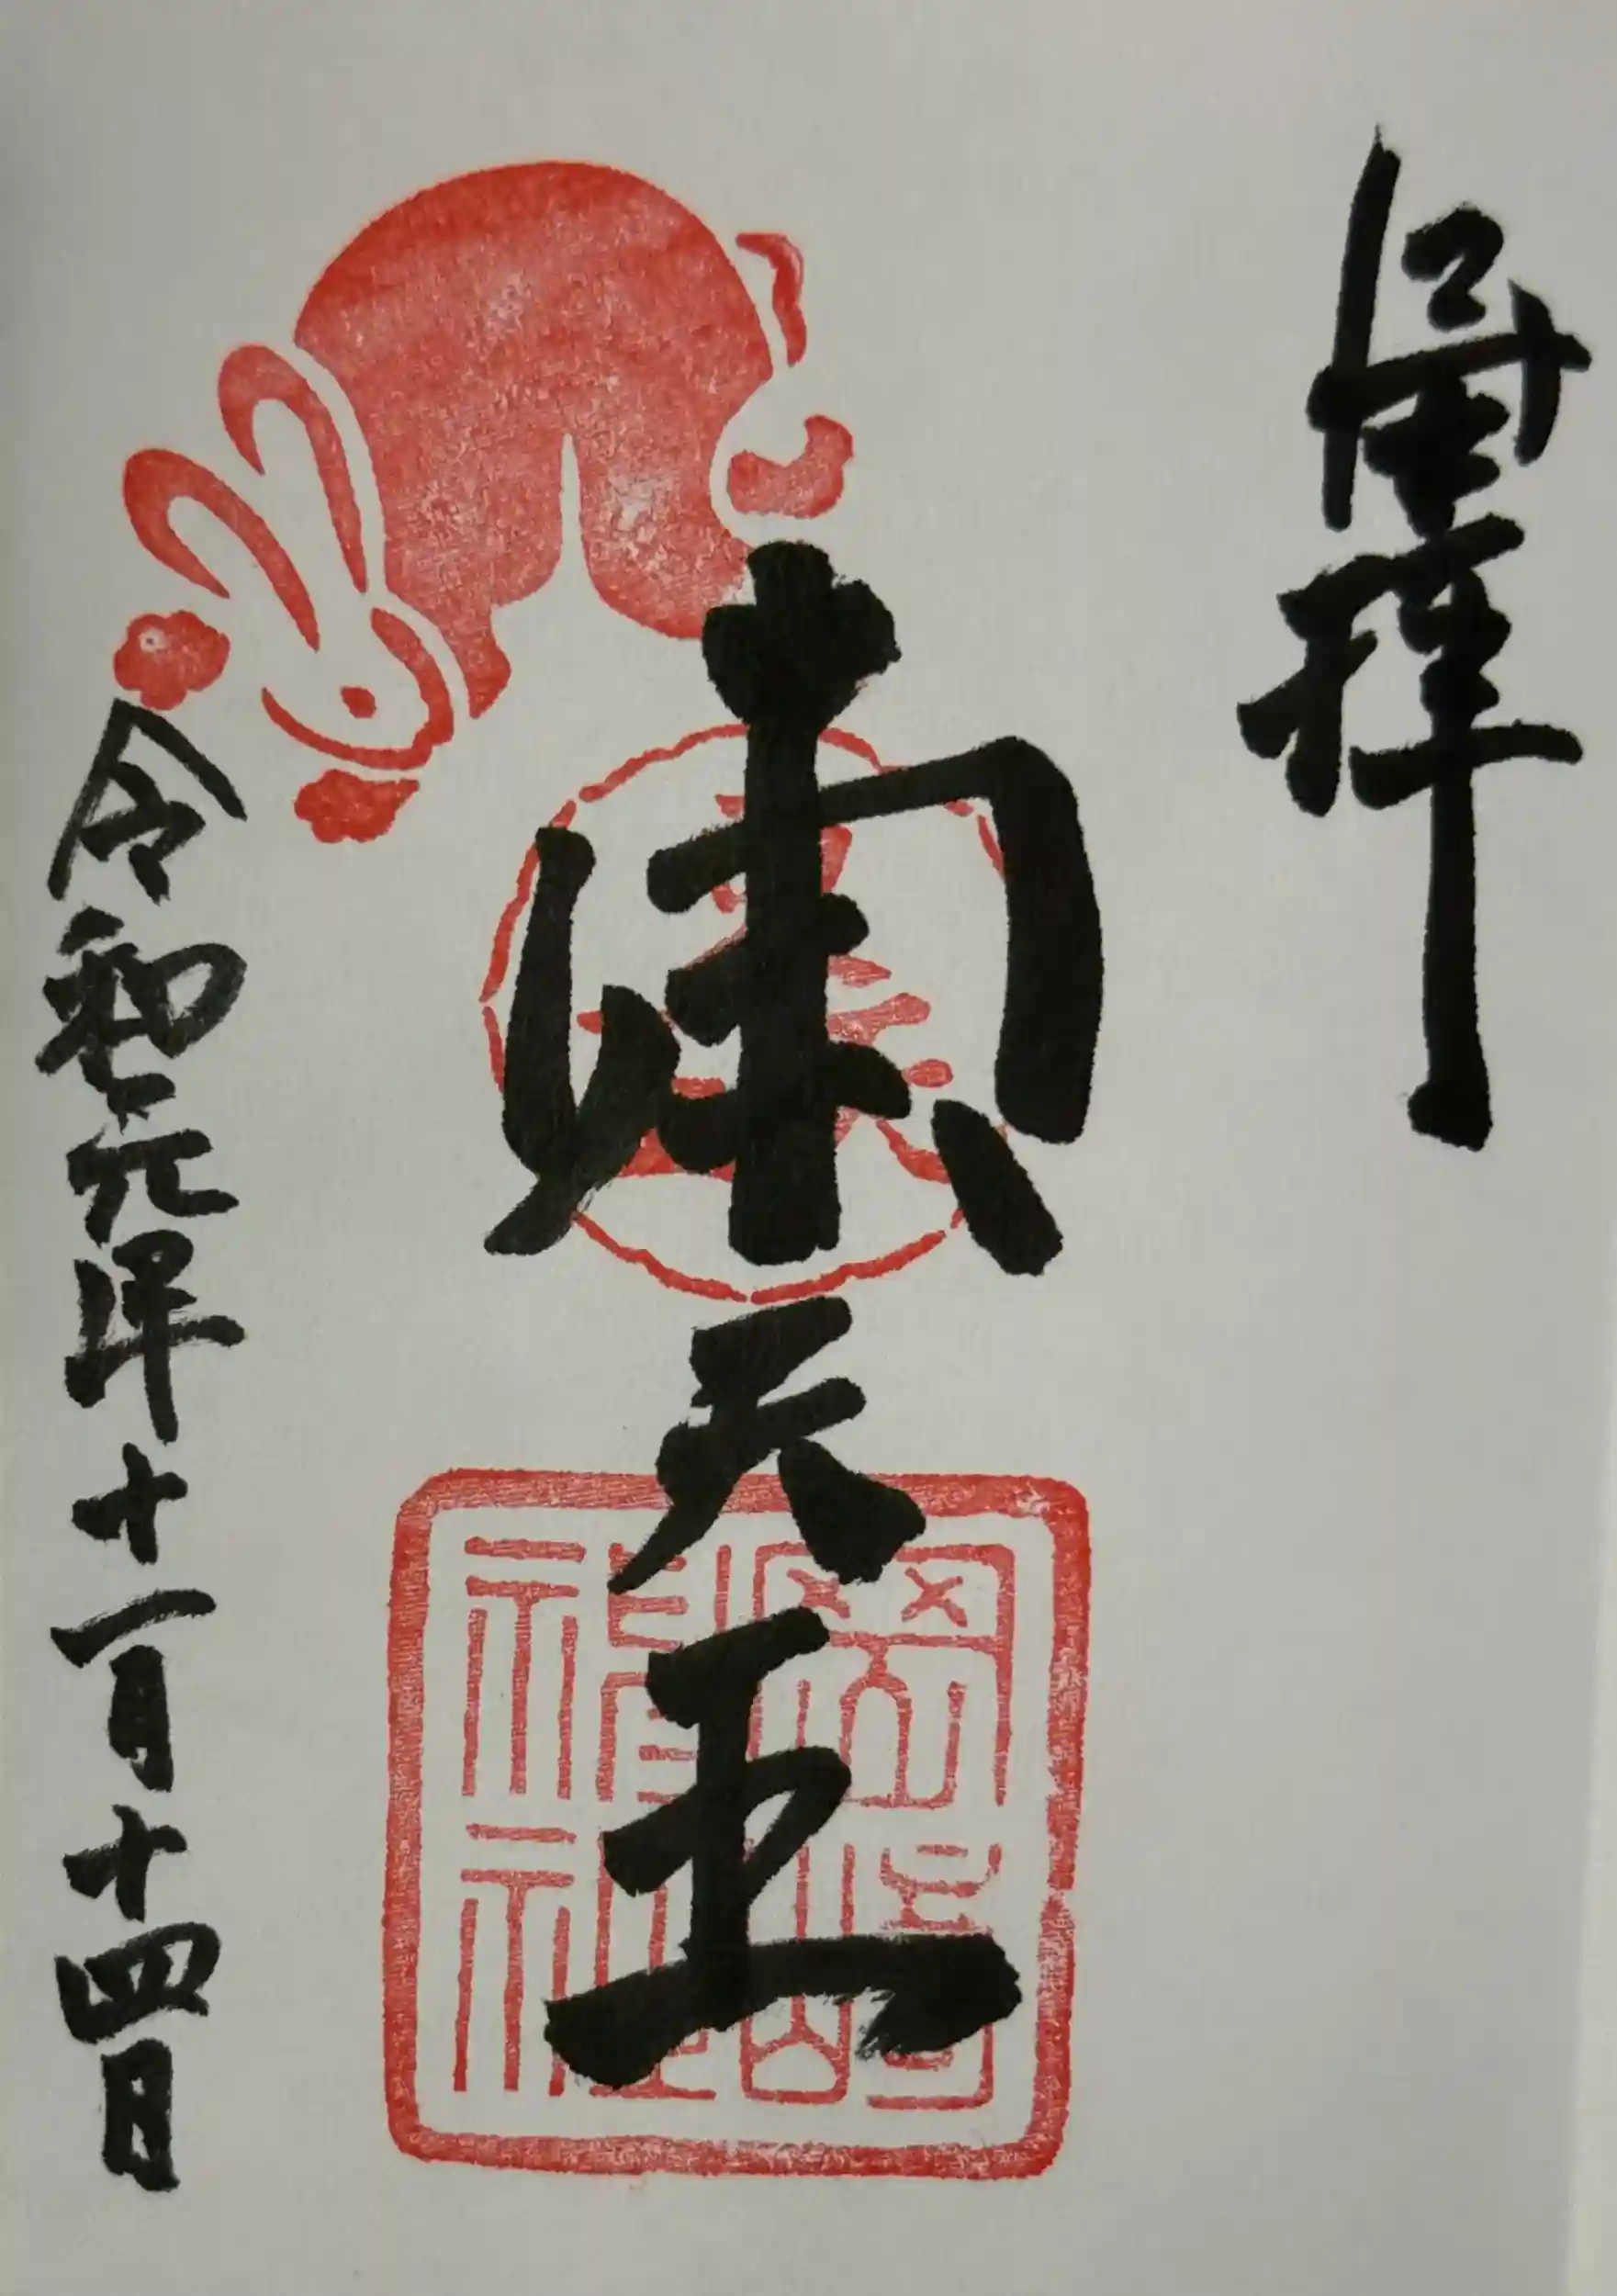 拝
東天王
令和元年十一月十四日
岡崎
神社